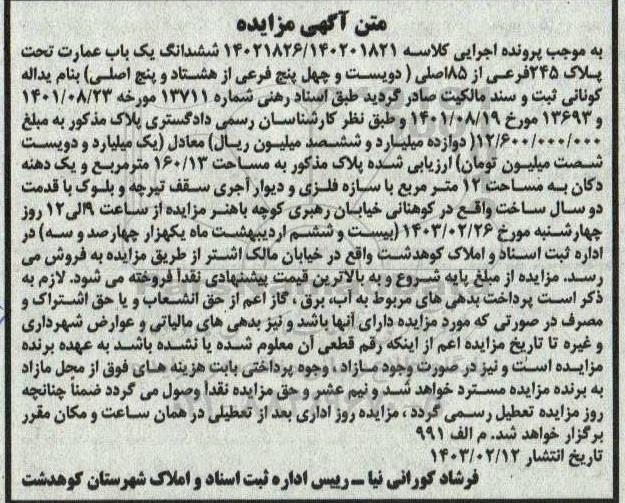 متن آگهی مزایده
به موجب پرونده اجرایی کلاسه ۱۴۰۲۱۸۲۶/۱۴۰۲۰۱۸۲۱ ششدانگ یک باب عمارت تحت
پلاک ۲۴۵فرعی از ۸۵اصلی ( دویست و چهل پنج فرعی از هشتاد و پنج اصلی) بنام یداله
کونانی ثبت و سند مالکیت صادر گردید طبق اسناد رهنی شماره ۱۳۷۱۱ مورخه ۱۴۰۱/۰۸/۲۳
و ۱۳۶۹۳ مورخ ۱۴۰۱/۰۸/۱۹ و طبق نظر کارشناسان رسمی دادگستری پلاک مذکور به مبلغ
۱۲/۶۰۰/۰۰۰/۰۰۰( دوازده میلیارد و ششصد میلیون ریال) معادل (یک میلیارد و دویست
شصت میلیون تومان) ارزیابی شده پلاک مذکور به مساحت ۱۶۰/۱۳ مترمربع و یک دهنه
دکان به مساحت ۱۲ متر مربع با سازه فلزی و دیوار آجری سقف تیرچه و بلوک با قدمت
دو سال ساخت واقع در کوهنانی خیابان رهبری کوچه باهنر مزایده از ساعت ۹الی۱۲ روز
چهارشنبه مورخ ۱۴۰۳/۰۲/۲۶ (بیست و ششم اردیبهشت ماه یکهزار چهارصد و سه) در
اداره ثبت اسناد و املاک کوهدشت واقع در خیابان مالک اشتر از طریق مزایده به فروش می
رسد. مزایده از مبلغ پایه شروع و به بالاترین قیمت پیشنهادی نقداً فروخته می شود. لازم به
ذکر است پرداخت بدهی های مربوط به آب، برق ، گاز اعم از حق انشعاب و یا حق اشتراک و
مصرف در صورتی که مورد مزایده دارای آنها باشد و نیز بدهی های مالیاتی و عوارض شهرداری
و غیره تا تاریخ مزایده اعم از اینکه رقم قطعی آن معلوم شده یا نشده باشد به عهده برنده
مزایده است و نیز در صورت وجود مازاد، وجوه پرداختی بابت هزینه های فوق از محل مازاد
به برنده مزایده مسترد خواهد شد و نیم عشر و حق مزایده نقداً وصول می گردد ضمناً چنانچه
روز مزایده تعطیل رسمی گردد ، مزایده روز اداری بعد از تعطیلی در همان ساعت و مکان مقرر
برگزار خواهد شد. م الف ۹۹۱
تاریخ انتشار ۱۴۰۳/۰۲/۱۲
فرشاد کورانی نیا – رییس اداره ثبت اسناد و املاک شهرستان کوهدشت